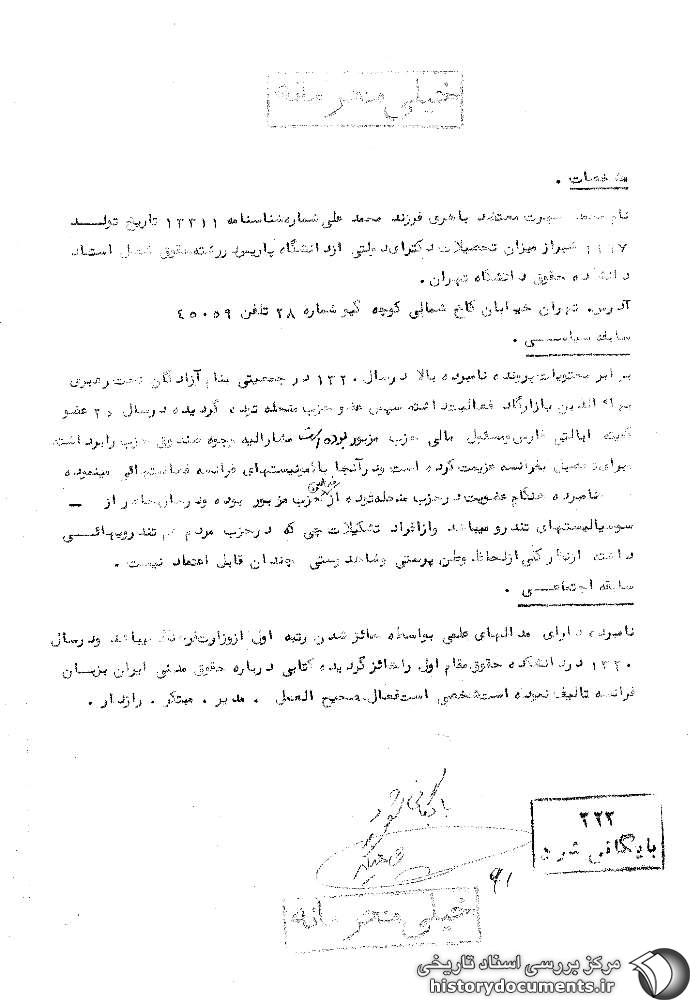 خیلی محرمانه
مشخصات .
نام محمد شهرت معتضد باهری فرزند محمد علی شماره شناسنامه ۱۳۳۱۱ تاریخ تولد
شیراز میزان تحصیلات دکترای دولتی از دانشگاه پاریس در رشته حقوق شغل استاد
دانشکده حقوق دانشگاه تهران .
آدرس . تهران خیابان کاخ شمالی کوچه گیو شماره ۲۸ تلفن ۴۵۰۵۹
سابقه سیاسی .
برابر محتویات پرونده نامبرده بالا در سال ۱۳۲۰ در جمعیتی بنام آزادگان تحت رهبری
بهاء الدین بازارگاد فعالیت داشته سپس عضو حزب منحله توده گردیده در سال عضو
کمیته ایالتی فارس و مسئول مالی حزب مزبور بوده است مشارالیه وجوه صندوق حزب را برداشته
برای تحصیل بفرانسه عزیمت کرده است و در آنجا با کمونیستهای فرانسه فعالیتهائی مینموده
نامبرده هنگام عضویت در حزب منحله توده از حزب مزبور بوده و در زمان حاضر از —
سوسیالیستهای تندرو میباشد و از افراد تشکیلات چی که در حزب مردم هم تندرویهائی
داشت از نظر کلی از لحاظ وطن پرستی و شاهدوستی چندان قابل اعتماد نیست .
سابقه اجتماعی .
نامبرده دارای مدالهای علمی بواسطه حائز شدن رتبه اول از وزارت فرهنگ میباشد و در سال
۱۳۲۰ در دانشکده حقوق مقام اول را حائز گردیده کتابی درباره حقوق مدنی ایران بزبان
فرانسه تالیف نموده است شخصی است فعال صحیح العمل . مدبر . مبتکر . رازدار .
بایگانی شود
۲۲۲
بایگانی شود
۹۱
خیلی محرمانه
مرکز بررسی اسناد تاریخی
historydocuments.ir